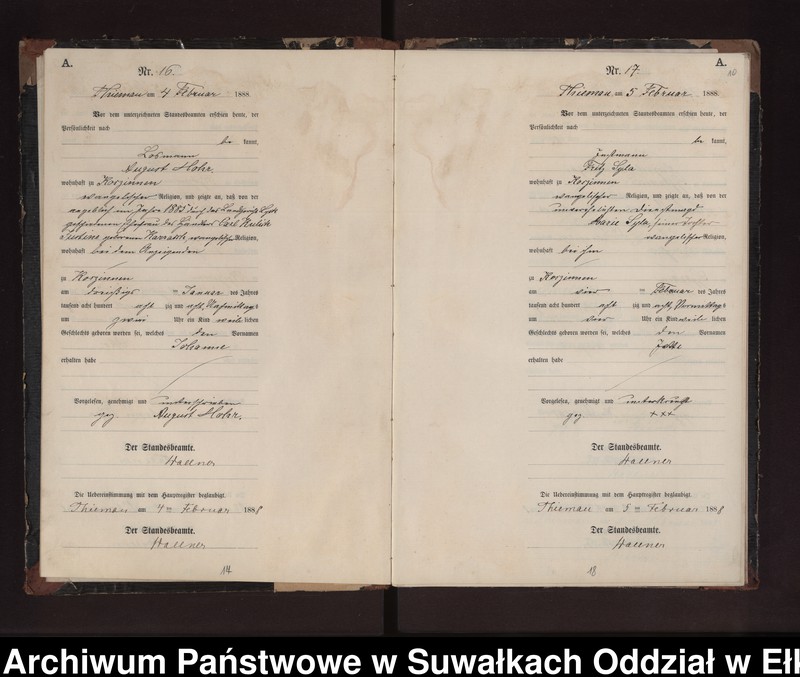 A.
Nr. 16.
Thiemau am 4 Februar 1888
Vor dem unterzeichneten Standesbeamten erschien heute, der
Persönlichkeit nach
be kannt,
Losmann
August Hohr.
wohnhaft zu Korzinnen
evangelischer Religion, und zeigte an, daß von der
angeblich im Jahre 1885 durch das Landgericht Lyck
geschiedenen Ehefrau des Carl
geborenen evangelischer Religion,
wohnhaft bei dem Anzeigenden
zu Korzinnen
am dreißigs ten Januar des Jahres
tausend acht hundert acht zig und acht, Nachmittags
um zwei Uhr ein Kind weib lichen
Geschlechts geboren worden sei, welches den Vornamen
Johanne
erhalten habe
Vorgelesen, genehmigt und unterschrieben
gez. August Hohr.
Der Standesbeamte.
Wallner
Die Uebereinstimmung mit dem Hauptregister beglaubigt.
Thiemau am 4 ten Februar 1888
Der Standesbeamte.
Wallner
14
A.
10
Nr. 17.
Thiemau am 5 Februar 1888.
Vor dem unterzeichneten Standesbeamten erschien heute, der
Persönlichkeit nach
be kannt,
Instmann
Fritz Syla
wohnhaft zu Korzinnen
evangelischer Religion, und zeigte an, daß von der
unverehelichten Dienstmagd
Marie Syla, seiner Tochter
evangelischer Religion,
wohnhaft bei ihm
zu Korzinnen
am vier ten Februar des Jahres
tausend acht hundert acht zig und acht, Vormittags
um vier Uhr ein Kind weib lichen
Geschlechts geboren worden sei, welches den Vornamen
Jette
erhalten habe
Vorgelesen, genehmigt und unterkreuzt
gez. +++
Der Standesbeamte.
Wallner
Die Uebereinstimmung mit dem Hauptregister beglaubigt.
Thiemau am 5 ten Februar 1888
Der Standesbeamte.
Wallner
18
Archiwum Państwowe w Suwałkach Oddział w Ełk